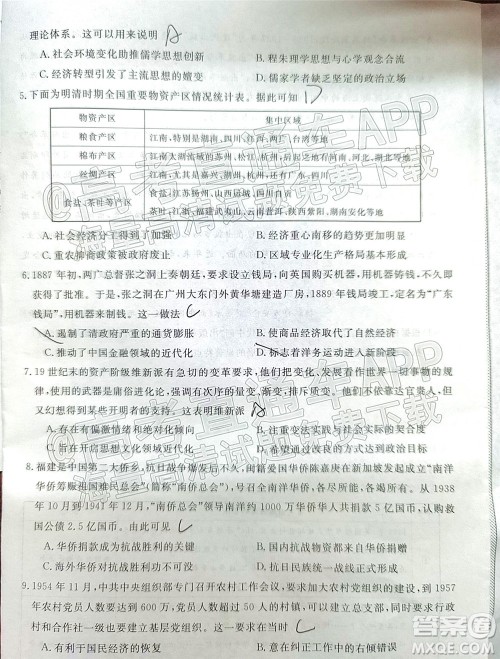 理论体系。这可以用来说明 A
A.社会环境变化助推儒学思想创新 B.程朱理学思想与心学观念合流
C.经济转型引发了主流思想的嬗变 D.儒家学者缺乏坚定的政治立场
5.下面为明清时期全国重要物资产区情况统计表。据此可知 D
物资产区 集中区域
粮食产区 江南,特别是湖南,四川,江西,两广,台湾等地
棉布产区 江南太湖流域的苏州、松江,杭州,后起有广东、四川、湖南、湖北等地
丝绸产区 江南,尤其是嘉兴、苏州、杭州,还有广东、四川
食盐,茶叶等产区 食盐,江苏扬州,山西运城,四川自贡
茶叶,江西,福建武夷山,云南普洱,陕西紫阳,湖南安化等地
A.社会经济分工得到了加强 B.经济重心南移的趋势更加明显
C.重农抑商政策被政府废止 D.区域专业化生产格局基本形成
6.1887年初,两广总督张之洞上奏朝廷,要求设立钱局,向英国购买机器,用机器铸钱,不久即
获批准。于是,张之洞在广州大东门外黄华塘建造厂房,1889年钱局竣工,定名为“广东
钱局”,用机器来制钱。这一做法
A.遏制了清政府严重的通货膨胀 B.使商品经济取代了自然经济
C.推动了中国金融领域的近代化 D.标志着洋务运动进入新阶段
7.19世纪末的资产阶级维新派有急切的变革要求,他们发展着作世界一切事物的规
律,使用的武器是庸俗进化论,强调有次序的量变,渐变,排斥跳跃性的质变、突变、革命,但
又幻想得到某些开明者的支持。这表明维新派 A
A.存在有革命情绪和绝对化倾向 B.注重变革方法的灵活性与实效
C.旨在开启思想文化领域近代化 D.试图通过改良的方式达到政治目标
8.福建是中国第二大侨乡,抗日战争爆发后不久,闽籍爱国华侨陈嘉庚在新加坡发起“南洋
华侨筹赈祖国难民总会”(“南侨总会”),得到南洋各地华侨的热烈响应和支持。从1938
年10月到1941年12月,“南侨总会”领导南洋约1000万华侨共捐款约5亿国币,认购救
国公债2.5亿国币。由此可见 C
A.华侨捐款成为抗战胜利的关键 B.南洋华侨是海外华人抗日主力
C.海外华侨对抗战作出巨大贡献 D.抗日民族统一战线正式形成
9.1954年11月,中共中央组织部专门召开农村工作会议,要求加大农村党组织的建设,到1957
年农村党员人数要达到600万,少数地区党员人数要超过50人的建立党总支,同时要求行政
村和合作社一级也要建立基层党组织。这一要求在当时 C
A.有利于国民经济的恢复 B.意在纠正农村中的右倾错误